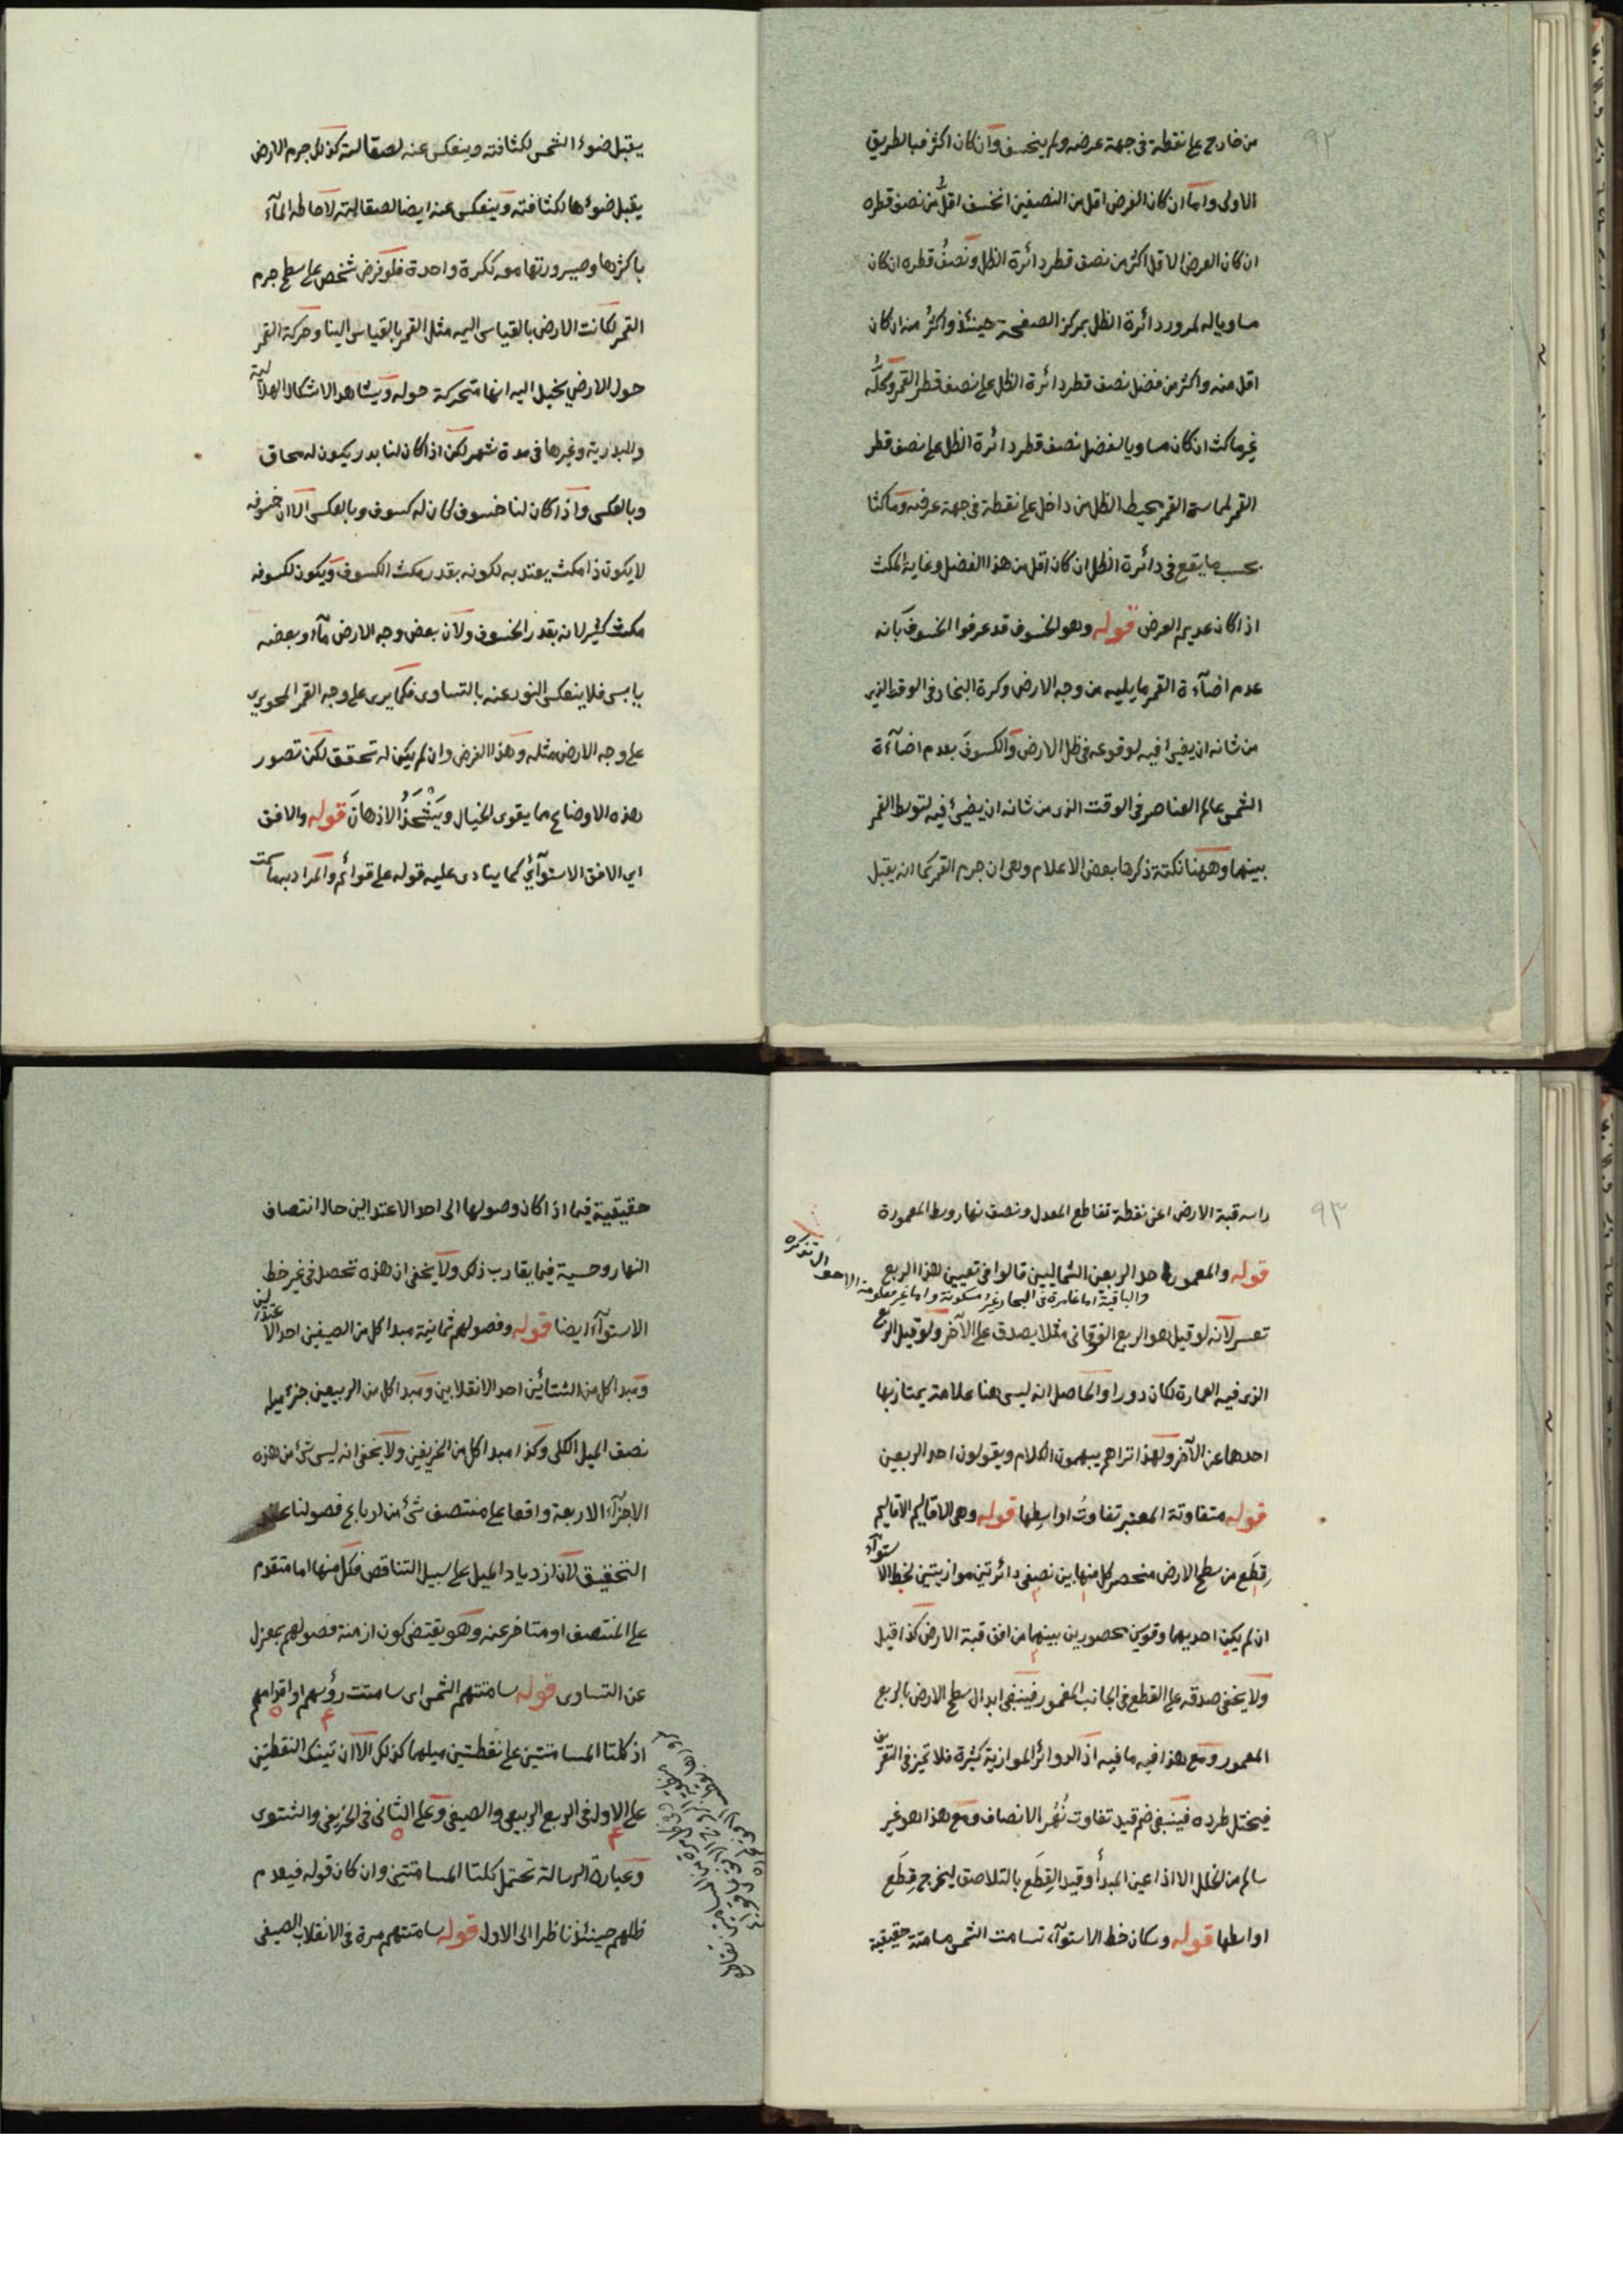 ٩٢
من خارج على نقطة فى جهة عرضه ولم ينخسف وان كان اكثر فبالطريق
الاولى واما ان كان العرض اقل من النصفين انخسف اقلُّ من نصف قطره
ان كان العرض الاقل اكثر من نصف قطر دائرة الظل ونصفُ قطره ان كان
مساويا له لمرور دائرة الظل بمركز الصفحة حينئذ واكثرُ منه ان كان
اقل منه واكثر من فضل نصف قطر دائرة الظل على نصف قطر القمر وكلُّه
غير ماكث ان كان مساويا لفضل نصف قطر دائرة الظل على نصف قطر
القمر لمماسة القمر محيط الظل من داخل على نقطة فى جهة عرضه وماكثا
بحسب ما يقع فى دائرة الظل ان كان اقل من هذا الفضل وغاية المكث
اذا كان عديم العرض قوله وهو الخسوف قد عرفوا الخسوف بانه
عدم اضآءة القمر ما يليه من وجه الارض وكرة البخار فى الوقت الذى
من شانه ان يضئ فيه لوقوعه فى ظل الارض والكسوفَ بعدم اضآءة
الشمس عالم العناصر فى الوقت الذى من شانه ان يضئ فيه لتوسط القمر
بينهما وههنا نكتة ذكرها بعض الاعلام وهى ان جرم القمر كما انه يقبل
يقبل ضوء الشمس لكثافته وينعكس عنه لصقالته كذلك جرم الارض
يقبل ضوءها لكثافته وينعكس عنه ايضا لصقالته لاحاطة المآء
باكثرها وصيرورتها معه ككرة واحدة فلو فرض شخص على سطح جرم
القمر لكانت الارض بالقياس اليه مثل القمر بالقياس الينا وحركة القمر
حول الارض يخيل اليه انها متحركة حوله ويشاهد الاشكال الهلالية
والبدرية وغيرها فى مدة شهر لكن اذا كان لنا بدر يكون له محاق
وبالعكس واذا كان لنا خسوف كان له كسوف وبالعكس الا ان خسوفه
لا يكون ذا مكث يعتد به لكونه بقدر مكث الكسوف ويكون لكسوفه
مكث كثير لانه بقدر الخسوف ولان بعض وجه الارض مآء وبعضه
يابس فلا ينعكس النور عنه بالتساوى فكما يرى على وجه القمر المحو يرى
على وجه الارض مثله وهذا الفرض وان لم يكن له تحقق لكن تصور
هذه الاوضاع مما يقوى الخيال ويَشْحَذُ الاذهانَ قوله والافق
اى الافق الاستوآئى كما ينادى عليه قوله على قوائم والمراد به ما سمت
٩٣
راسه قبة الارض اعنى نقطة تقاطع المعدل ونصف نهار وسط المعمورة
قوله والمعمور احد الربعين الشماليين قالوا فى تعيين هذا الربع
والباقية اما غامرة فى البحار غير مسكونة واما غير معلومة الاحوال تذكره
تعسر لانه لو قيل هو الربع الفوقانى مثلا يصدق على الآخر ولو قيل الربع
الذى فيه العمارة لكان دورا والحاصل انه ليس هنا علامة يمتاز بها
احدهما عن الآخر ولهذا تراهم يبهمون الكلام ويقولون احد الربعين
قوله متفاوتة المعتبر تفاوتُ اواسطِها قوله وهى الاقاليم الاقاليم
قِطَع من سطح الارض منحصر كل منها بين نصفى دائرتين موازيتين لخط الاستوآء
ان لم يكن احديهما وقوسين محصورين بينهما من افق قبة الارض كذا قيل
ولا يخفى صدقه على القطع فى الجانب المغمور فينبغى ابدال سطح الارض بالربع
المعمور ومع هذا فيه ما فيه اذ الدوائر الموازية كثيرة فلا تميز فى التعريف
فيختل طرده فينبغى ضم قيد تفاوت نُهُر الانصاف ومع هذا هو غير
سالم من الخلل الا اذا عين المبدأ وقيد القِطَع بالتلاصق ليخرج قِطَع
اواسطها قوله وسكان خط الاستوآء تسامت الشمس مسامتة حقيقية
حقيقية فيما اذا كان وصولها الى احد الاعتدالين حال انتصاف
النهار وحسية فيما يقارب ذلك ولا يخفى ان هذه تحصل فى غير خط
الاستوآء ايضا قوله وفصولهم ثمانية مبدا كل من الصيفين احد الاعتدالين
ومبدا كل من الشتائين احد الانقلابين ومبدا كل من الربيعين جزء ميله
نصف الميل الكلى وكذا مبدا كل من الخريفين ولا يخفى انه ليس شئ من هذه
الاجزآء الاربعة واقعا على منتصف شئ من ارباع فصولنا عند
التحقيق لان ازدياد الميل على سبيل التناقص فكل منها اما متقدم
على المنتصف او متاخر عنه وهو يقتضى كون ازمنة فصولهم بمعزل
عن التساوى قوله سامتتهم الشمس اى سامتت رؤسهم او اقدامهم
اذ كلتا المسامتتين على نقطتين ميلهما كذلك الا ان تينك النقطتين
على الاول فى الربع الربيعى والصيفى وعلى الثانى فى الخريفى والشتوى
وعبارة الرسالة تحتمل كلتا المسامتتين وان كان قوله فيعدم
ظلهم حينئذ ناظرا الى الاول قوله سامتتهم مرة فى الانقلاب الصيفى